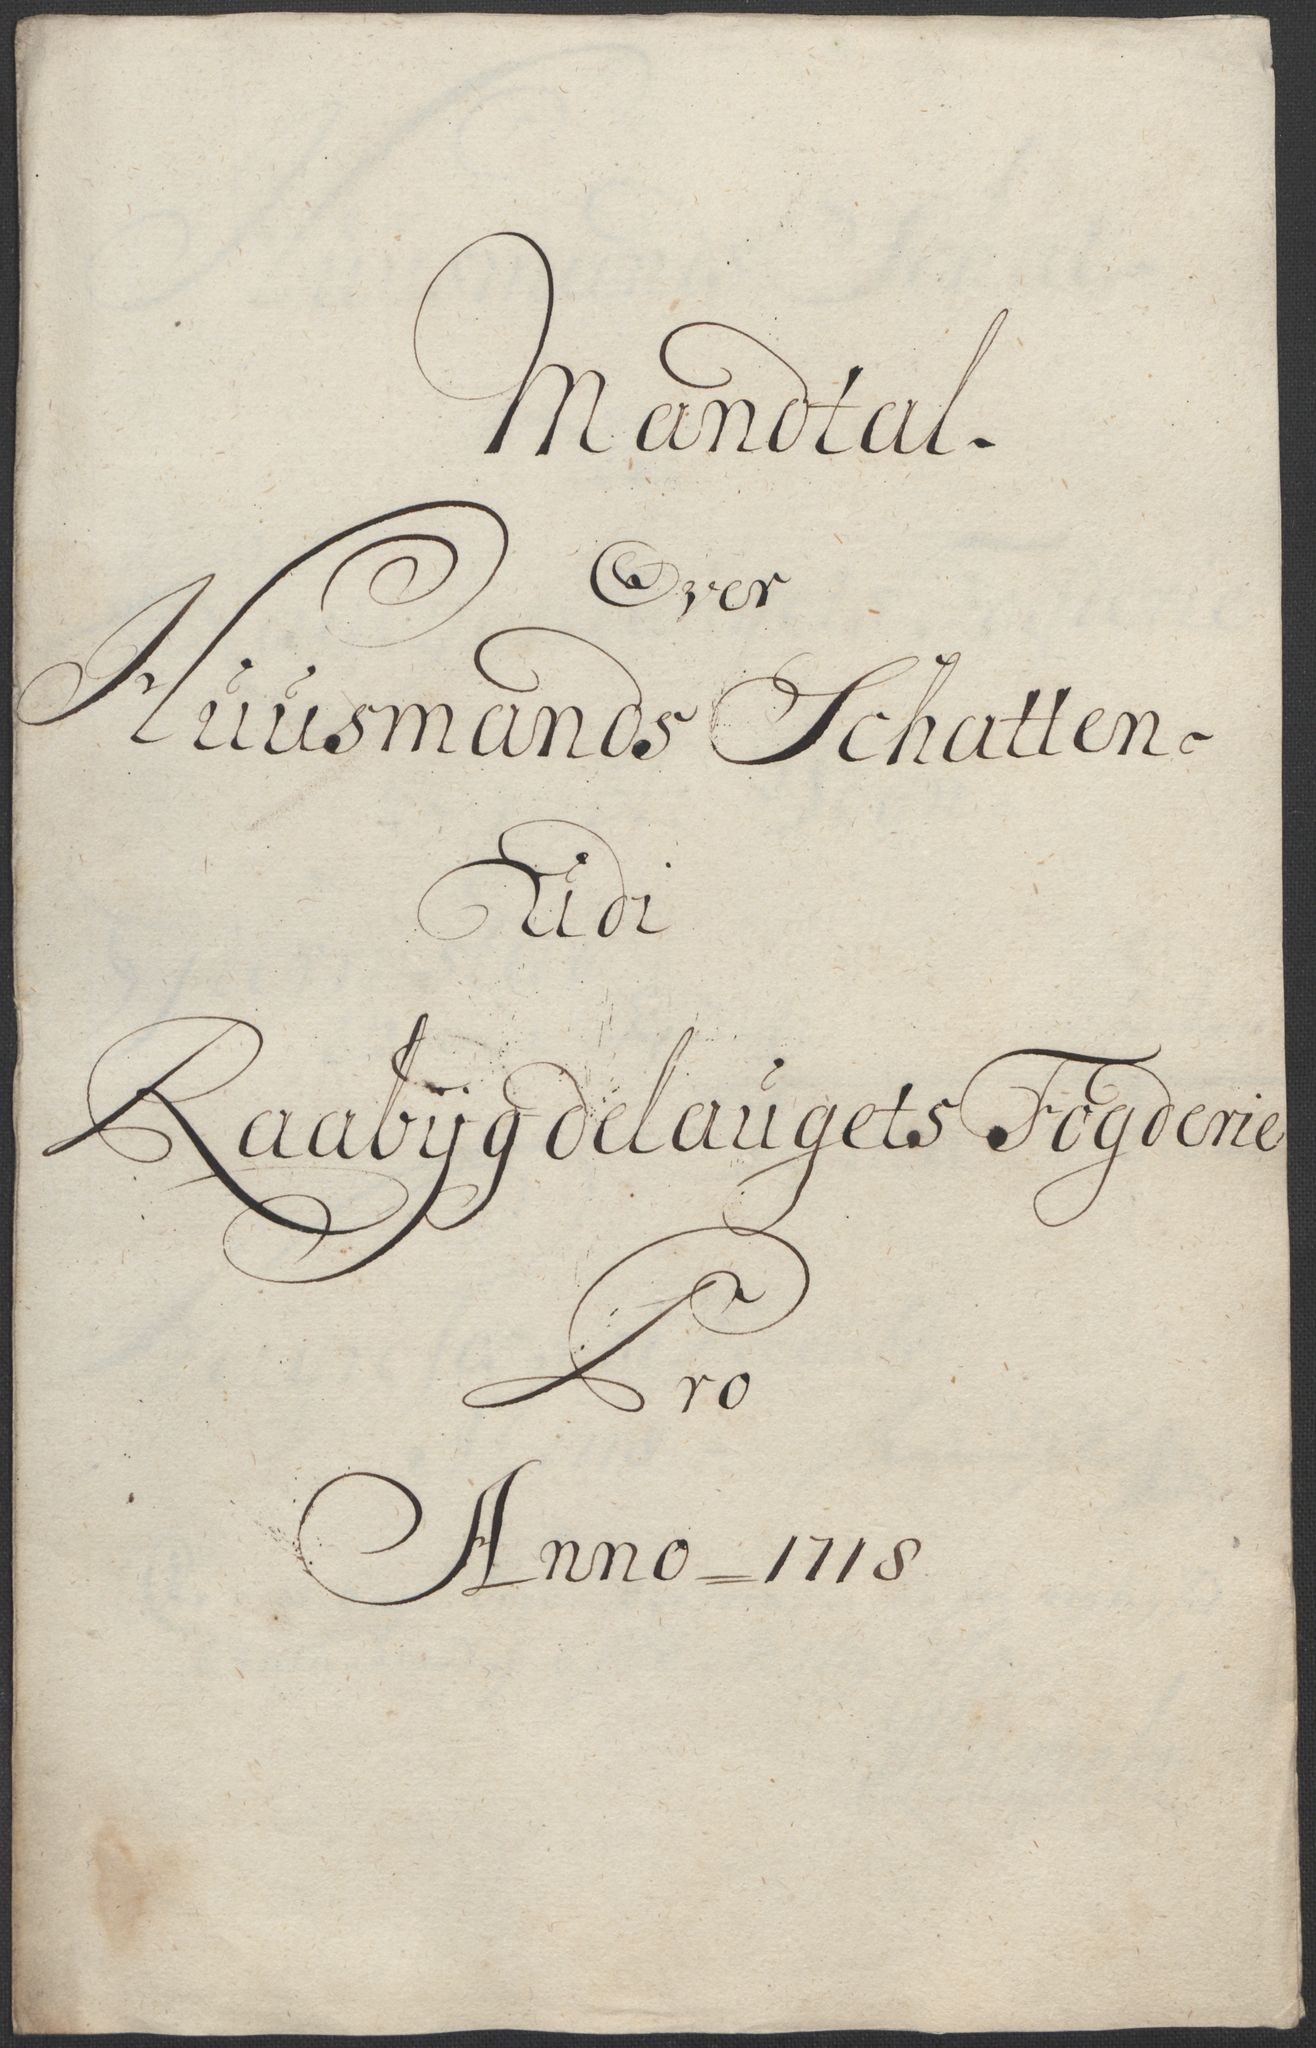 Mandtal.
Over
Huusmands Schatten.
Udi
Raabygdelaugets Fogderie
Pro
Anno = 1718